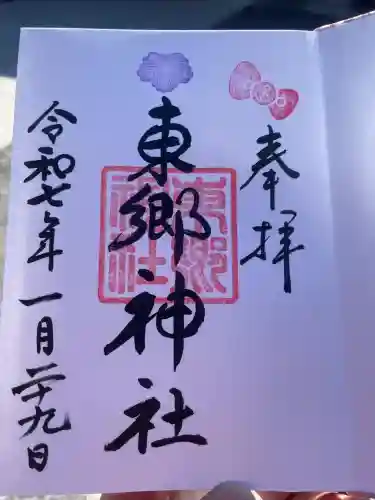 奉拝
東郷神社
東郷神社
令和七年一月二十九日